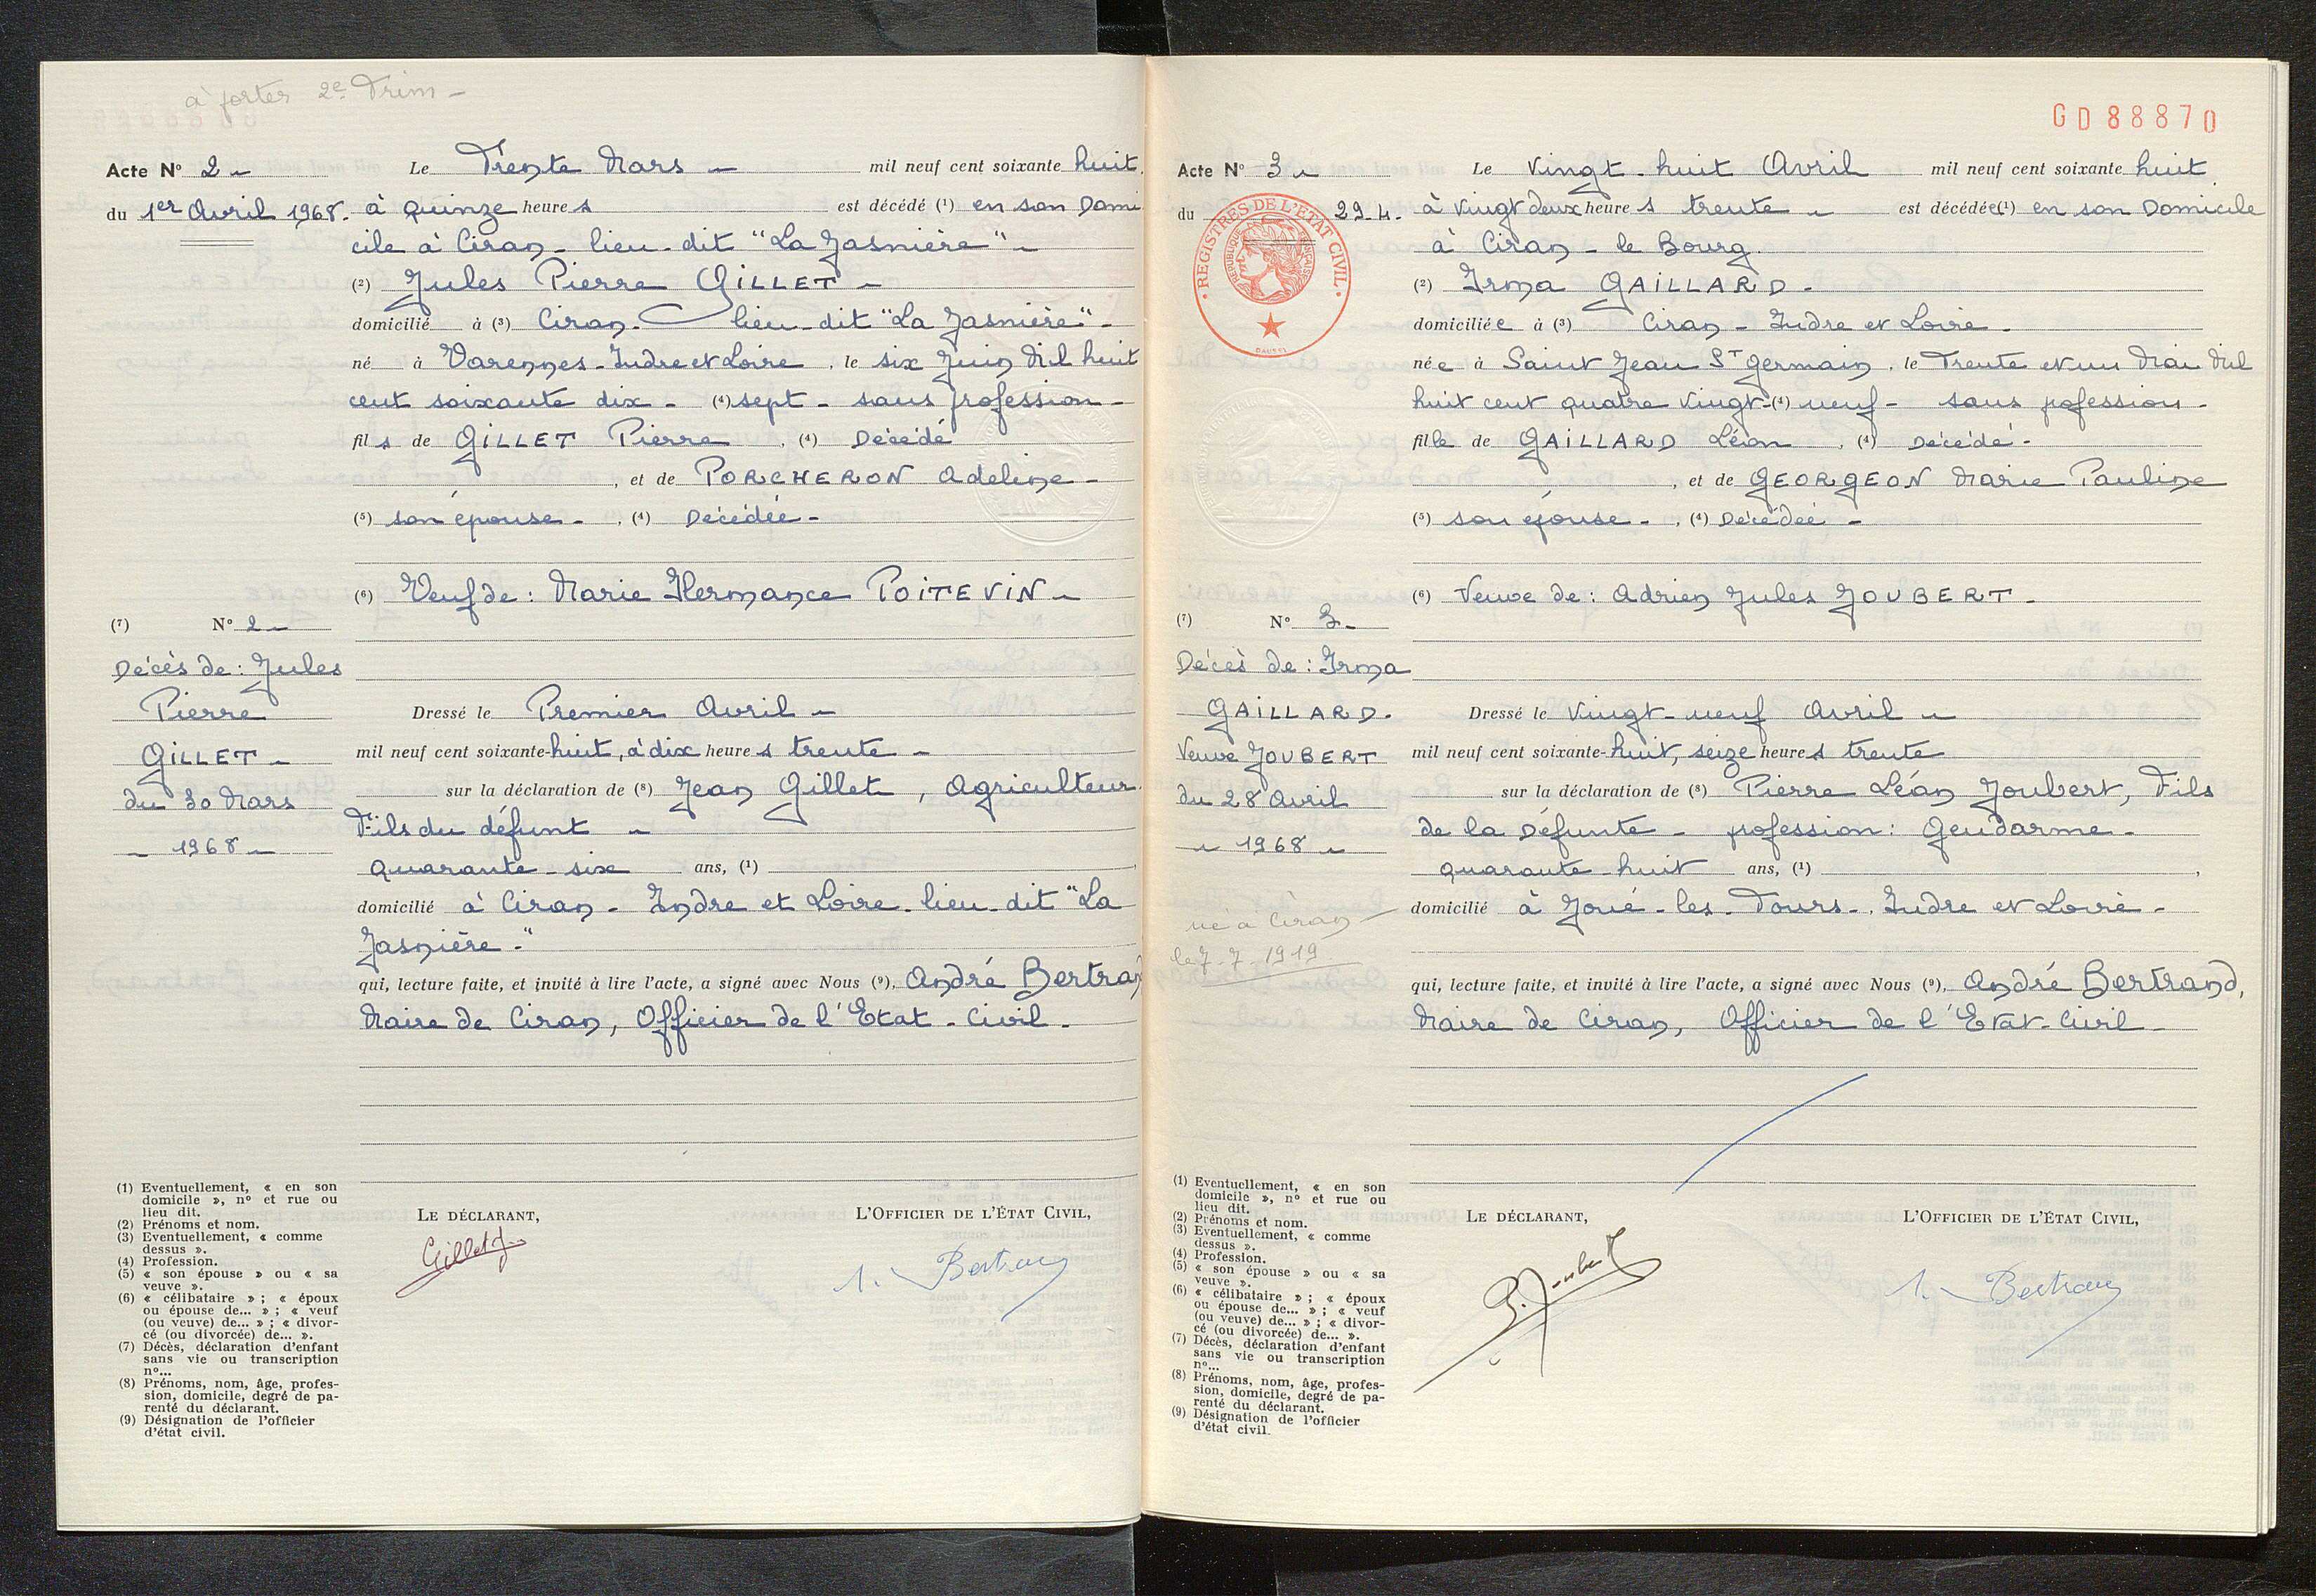 à porter 2e Trim -
Acte N° 2 -
du 1er Avril 1968.
Le Trente Mars - mil neuf cent soixante huit.
à quinze heures est décédé (1) en son Domi
cile à Ciran - lieu-dit "La Jasnière" -
(2) Jules Pierre GILLET -
domicilié à (3) Ciran - lieu-dit "La Jasnière" -
né à Varennes - Indre et Loire, le six Juin Mil huit
cent soixante dix - (4) sept - sans profession -
fils de GILLET Pierre, (4) Décédé
, et de PORCHERON Adeline -
(5) son épouse - , (4) Décédée -
(6) Veuf de : Marie Hermance POITEVIN -
(7) N° 2 -
Décès de : Jules
Pierre
GILLET -
du 30 Mars
- 1968 -
Dressé le Premier Avril -
mil neuf cent soixante-huit, à dix heures trente -
sur la déclaration de (8) Jean Gillet, Agriculteur.
Fils du défunt -
quarante-six ans, (1)
domicilié à Ciran - Indre et Loire - lieu-dit "La
Jasnière -"
qui, lecture faite, et invité à lire l'acte, a signé avec Nous (9), André Bertrand
Maire de Ciran, Officier de l'Etat-Civil -
(1) Eventuellement, « en son
domicile », n° et rue ou
lieu dit.
(2) Prénoms et nom.
(3) Eventuellement, « comme
dessus ».
(4) Profession.
(5) « son épouse » ou « sa
veuve ».
(6) « célibataire » ; « époux
ou épouse de... » ; « veuf
(ou veuve) de... » ; « divor-
cé (ou divorcée) de... ».
(7) Décès, déclaration d'enfant
sans vie ou transcription
n°...
(8) Prénoms, nom, âge, profes-
sion, domicile, degré de pa-
renté du déclarant.
(9) Désignation de l'officier
d'état civil.
LE DÉCLARANT,
Gillet J.
L'OFFICIER DE L'ÉTAT CIVIL,
A. Bertrand
GD 88870
Acte N° 3 -
du 29.4.
REGISTRES DE L'ÉTAT CIVIL
RÉPUBLIQUE FRANÇAISE
DAUSSY
Le Vingt-huit Avril mil neuf cent soixante huit
à Vingt deux heures trente - est décédée (1) en son Domicile
à Ciran - le Bourg.
(2) Irma GAILLARD -
domiciliée à (3) Ciran - Indre et Loire -
née à Saint Jean St Germain, le Trente et un Mai Mil
huit cent quatre vingt-(4) neuf - sans profession -
fille de GAILLARD Léon, (4) Décédé -
, et de GEORGEON Marie Pauline
(5) son épouse - , (4) Décédée -
(6) Veuve de : Adrien Jules JOUBERT -
(7) N° 3 -
Décès de : Irma
GAILLARD.
Veuve JOUBERT
du 28 Avril
- 1968 -
né à Ciran
le 7.7.1919
Dressé le Vingt-neuf Avril -
mil neuf cent soixante-huit, seize heures trente
sur la déclaration de (8) Pierre Léon Joubert, Fils
de la Défunte - profession : Gendarme -
quarante-huit ans, (1) ,
domicilié à Joué-les-Tours - Indre et Loire -
qui, lecture faite, et invité à lire l'acte, a signé avec Nous (9), André Bertrand,
Maire de Ciran, Officier de l'Etat-Civil -
(1) Eventuellement, « en son
domicile », n° et rue ou
lieu dit.
(2) Prénoms et nom.
(3) Eventuellement, « comme
dessus ».
(4) Profession.
(5) « son épouse » ou « sa
veuve ».
(6) « célibataire » ; « époux
ou épouse de... » ; « veuf
(ou veuve) de... » ; « divor-
cé (ou divorcée) de... ».
(7) Décès, déclaration d'enfant
sans vie ou transcription
n°...
(8) Prénoms, nom, âge, profes-
sion, domicile, degré de pa-
renté du déclarant.
(9) Désignation de l'officier
d'état civil.
LE DÉCLARANT,
P. Joubert
L'OFFICIER DE L'ÉTAT CIVIL,
A. Bertrand